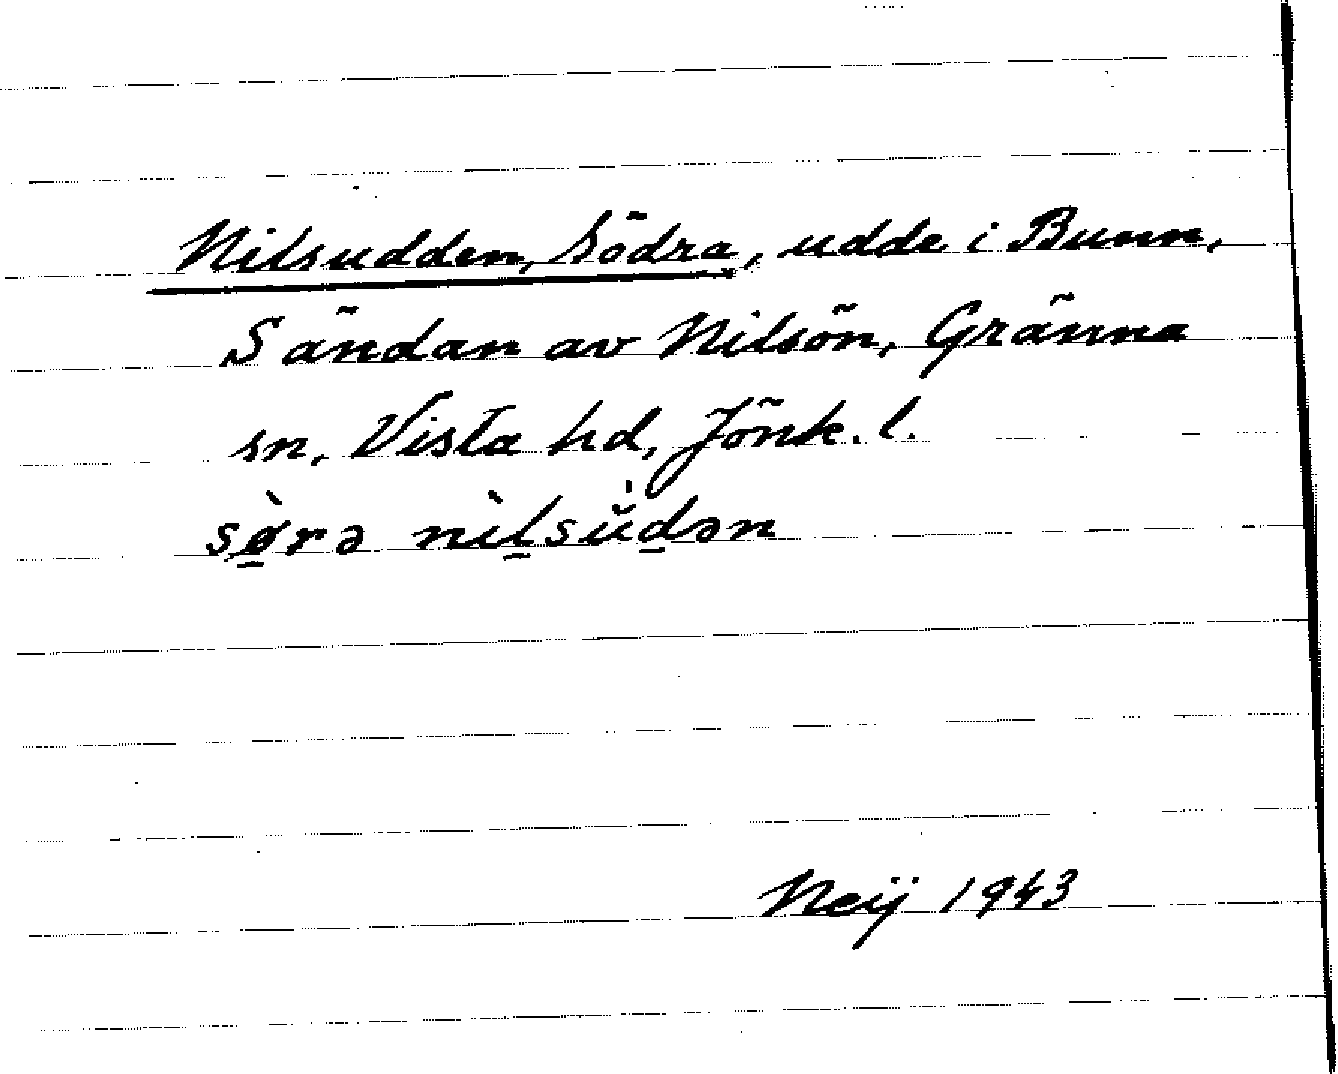 Nilsudden, Södra, udde i Bunn,
S ändan av Nilsön, Gränna
sn, Vista hd, Jönk. l.
sø̱̀rə nìḻsùḏən
Neij 1943